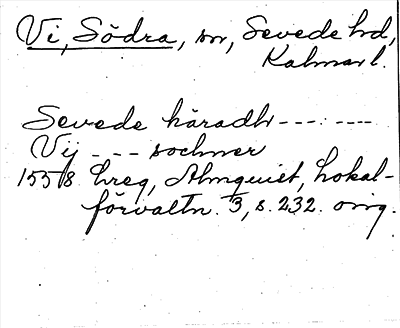 Vi, Södra, sn, Sevede hd,
Kalmar l.
Sevede häradh --- ---
Vij --- sochner
1558 hreg, Almquist, Lokal-
förvaltn. 3, s. 232. orig.